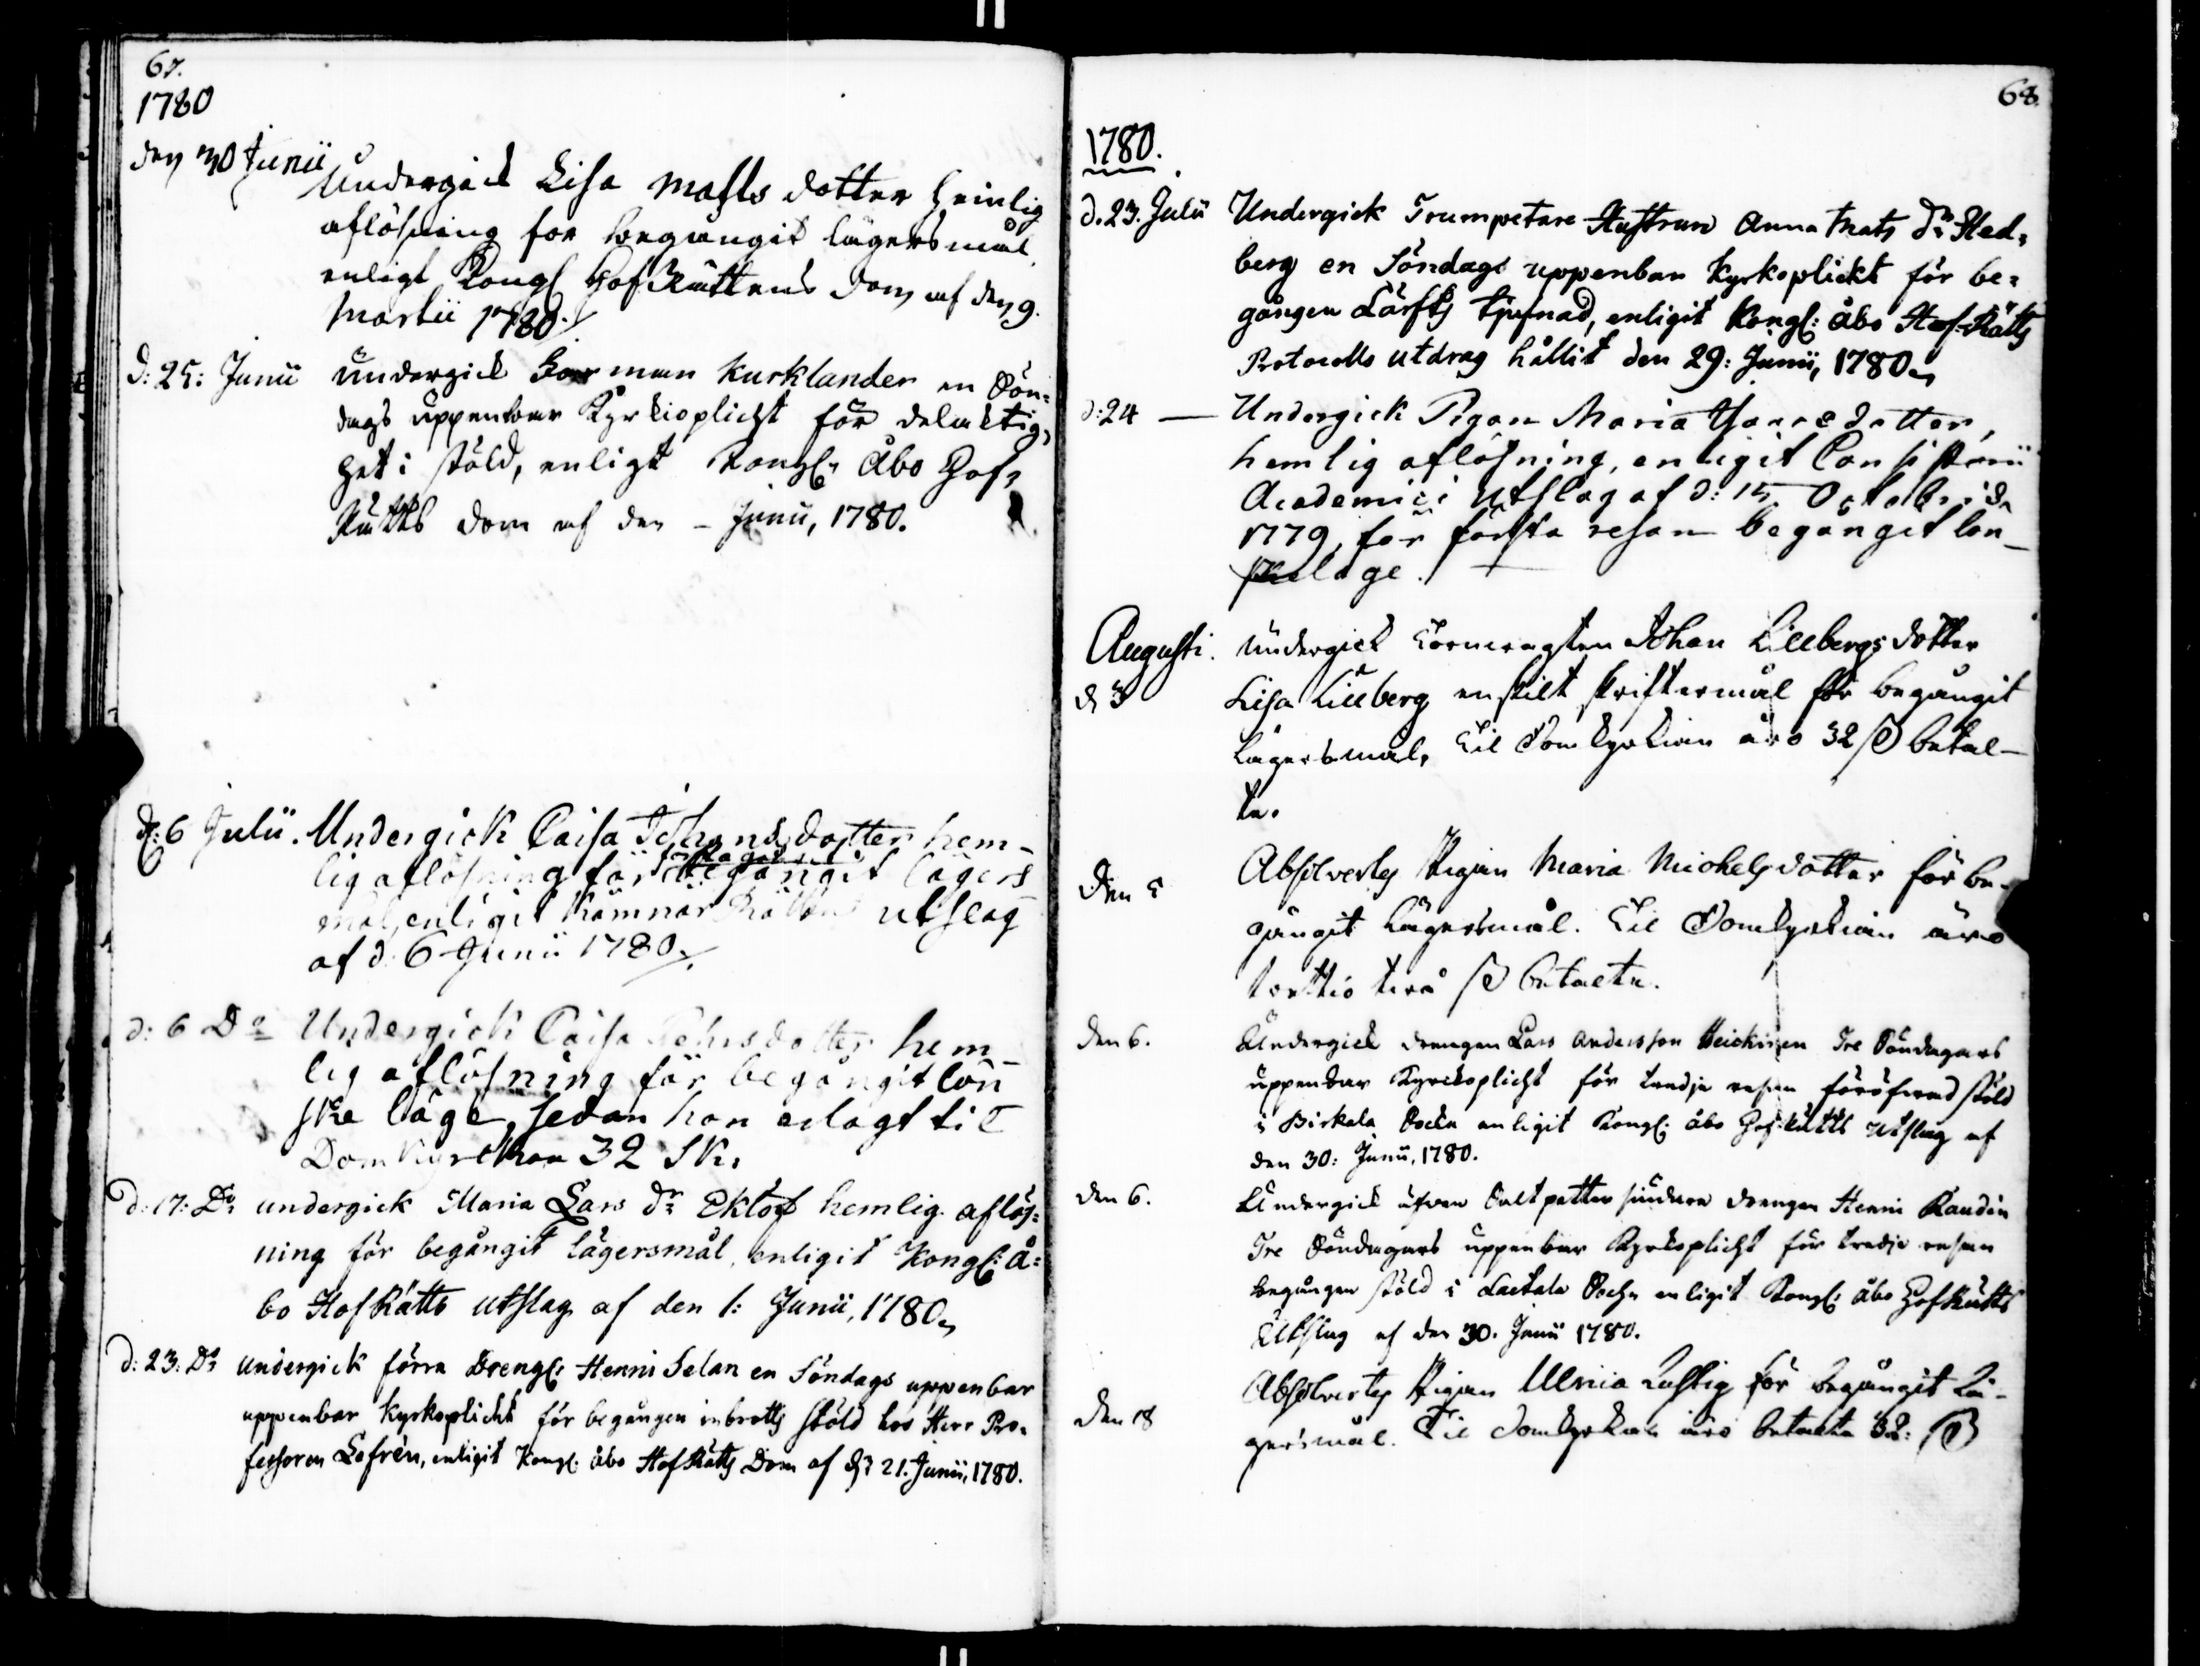 67.
1780
den 30 Junii
Undergick Lisa Matts dotter heimlig
aflösning for begångit lägersmål
enligt Kongl Hof Rättens dom af den 9.
Martii 1780./
d: 25: Junii undergick Herman Kurklander en Sön-
dags uppenbar Kyrkioplicht för delaktig-
het i stöld, enligt Kongl: Åbo Hof-
Rätts dom af den - Junii, 1780.
d: 6 Julii. Undergick Caisa Johansdotter hem-
lig aflösning för begångit lägers
mål, enligit Kämnärs Rättens utslag
af d. 6 Junii 1780./.
d: 6 Do Undergick Caisa dotter hem-
lig aflösning för begångit lön
ske läge, sedan hon erlagt til
Domkyrkan 32 Sk.
d. 17: Do undergick Maria Lars dr Eklöf hemlig aflös-
ning för begångit lägersmål, enligit Kongl: Å-
bo HofRätts utslag af den 1: Junii, 1780.
d: 23: Do undergick förra Drengl: Henric Selan en Söndags uppenbar
uppenbar Kyrkoplicht för begången inbrotts stöld hos Herr Pro-
fessoren Lefrén, enligit Kongl. Åbo HofRätts Dom af dn 21. Junii, 1780.
68.
1780.
d. 23. Julii Undergick Trumpetare Hustrun Anna Mats dr Hed-
berg en Söndags uppenbar Kyrkoplickt för be-
gången tjufnad, enligit Kongl: Åbo Hof-Rätts
Protocolls utdrag hållit den 29: Junii, 1780.
d: 24 — Undergick Pigan Maria dotter,
hemlig aflösning, enligit Consistorii
Academici Utslag af d: 15 Octobris
1779, för första resan begånget lön-
skeläge.
Augusti. Undergick Johan Lillbergs dotter
d. 3 Lisa Lillberg enskilt skriftermål för begångit
Lägersmål, Til Domkyrkian äro 32 ß betal-
ta.
Den 5 Absolvertes Pigan Maria Michelsdotter för be-
gångit Lägersmål. Til Domkyrkian äro
trettio två ß betalta.
den 6. Undergick drengen Lars Andersson Heickinen Tre Söndagars
uppenbar Kyrckoplicht för tredje resan föröfwad stöld
i Birkala Sockn enligit Kongl: Åbo Hof-Rätts Utslag af
den 30: Junii, 1780.
den 6. Undergick äfven Saltpetter siudare drengen Henric Randin
Tre Söndagars uppenbar Kyrkoplicht för tredje resan
begången stöld i Sockn enligit Kongl: Åbo HofRätts
Utslag af den 30. Junii 1780.
den 18 Absolvertes Pigan Ulrica Lustig för begångit Lä-
gersmål. Til Domkyrkan äro betalta 32: ß